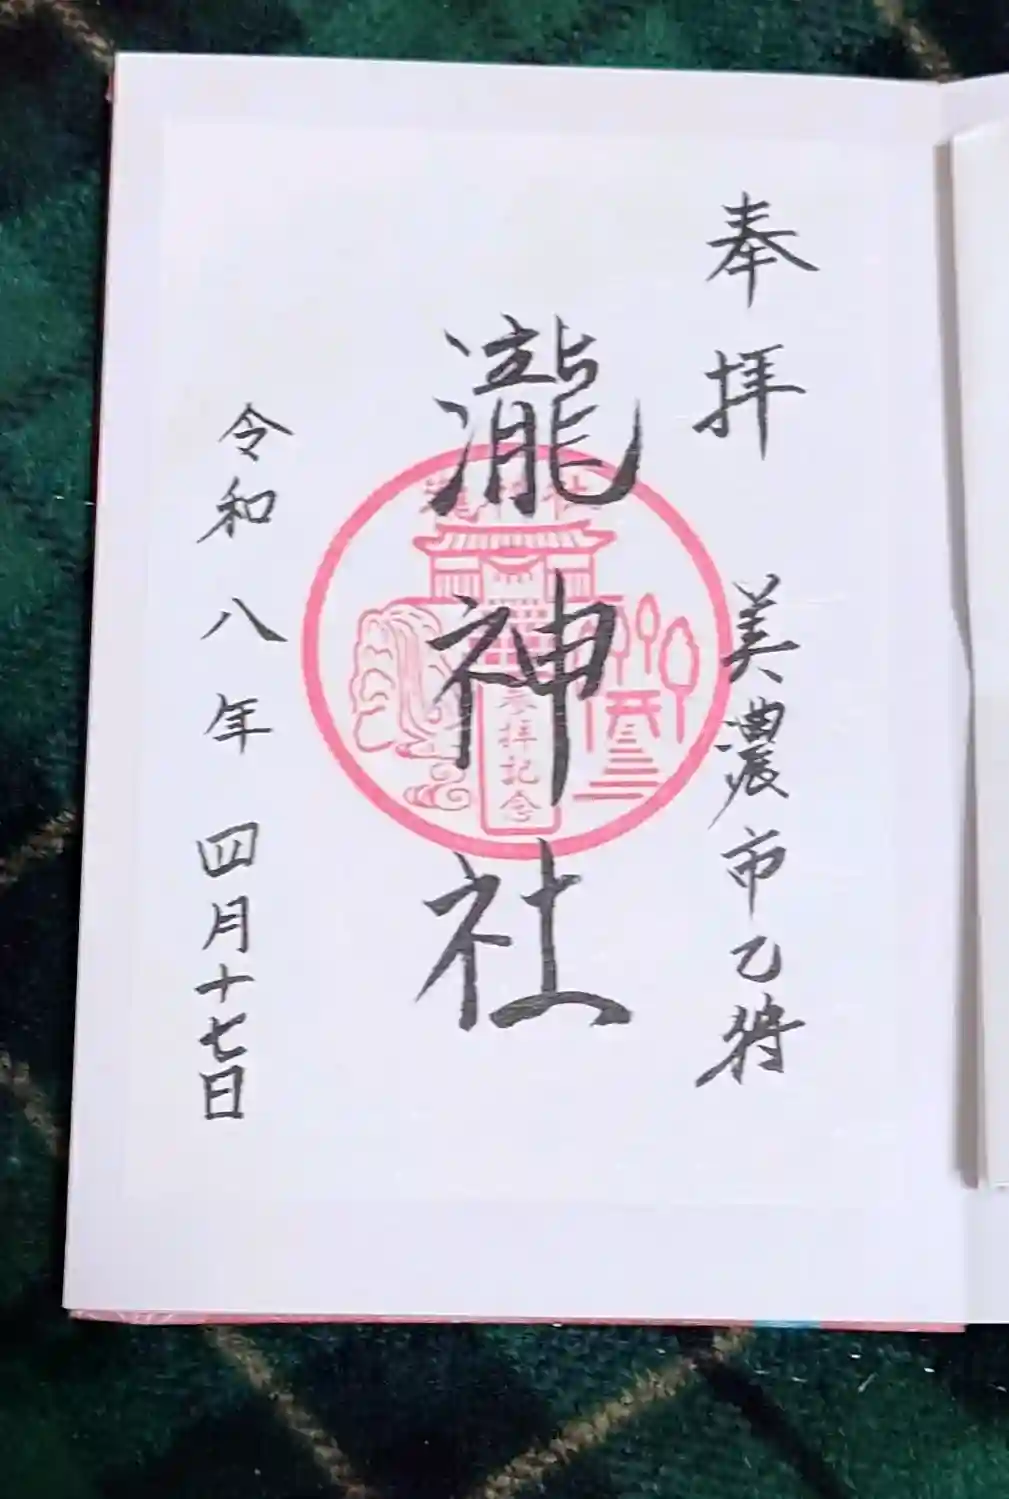 奉拝
美濃市乙狩
瀧神社
瀧神社
参拝記念
令和八年 四月十七日